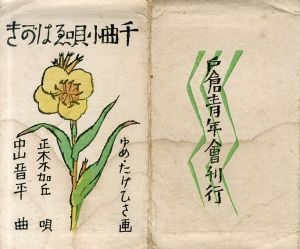 千曲小唄ゑはがき
ゆめたけひさ画
正木不如丘 唄
中山晋平 曲
戸倉青年會刊行